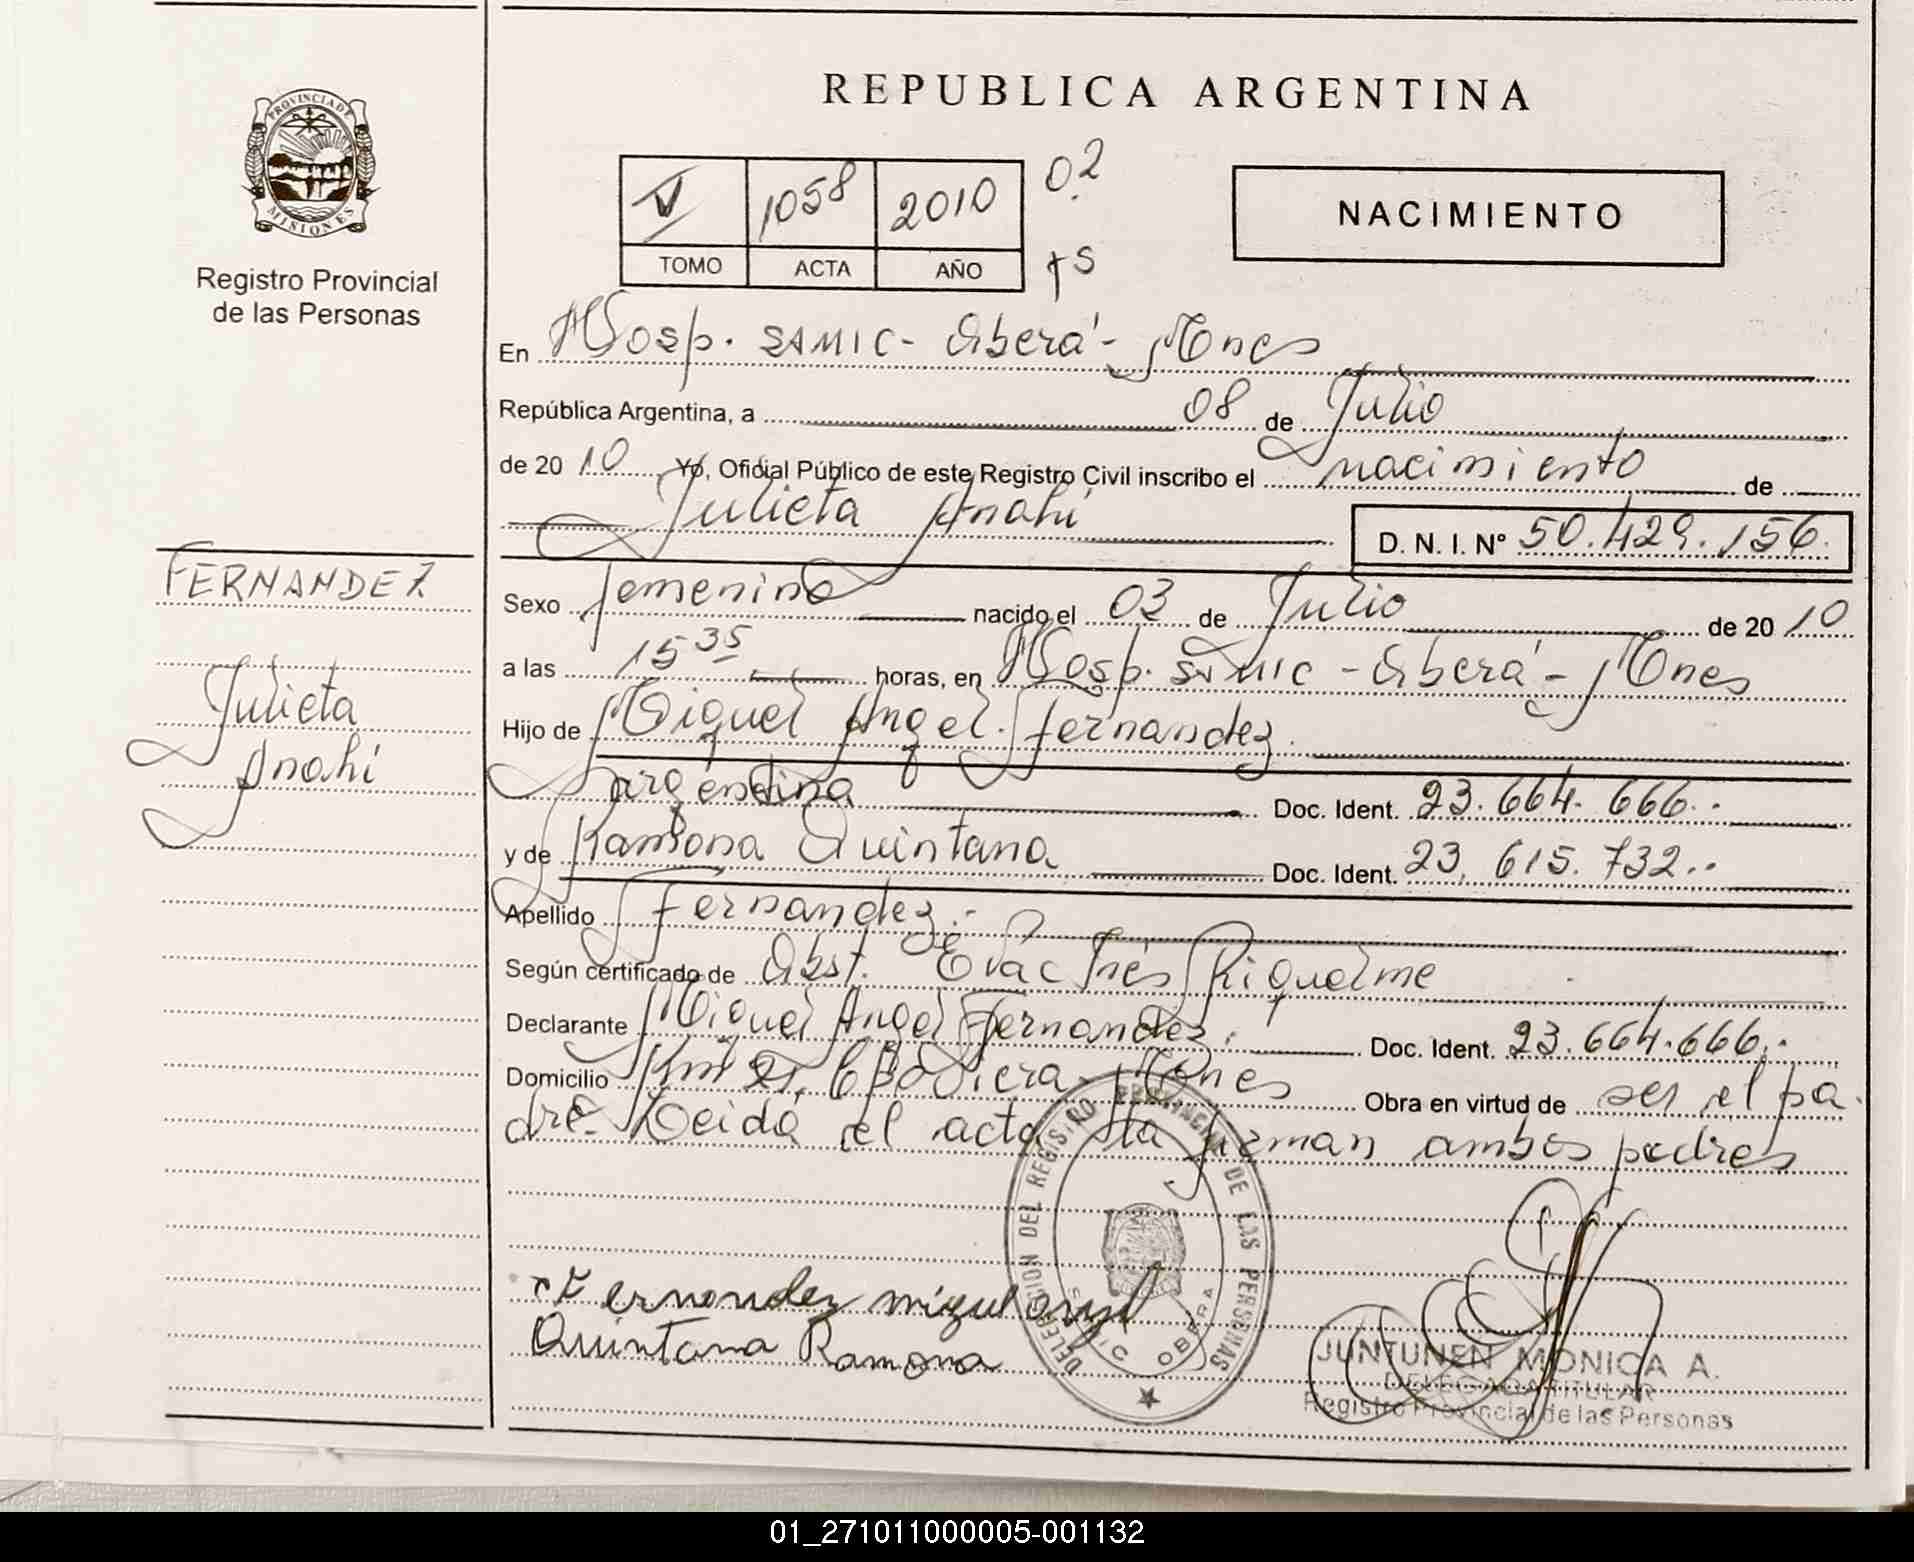 REPUBLICA ARGENTINA
PROVINCIA DE
MISIONES
Registro Provincial
de las Personas
V 1058 2010 02
TOMO ACTA AÑO
NACIMIENTO
En Hosp. SAMIC - Oberá - Mnes
República Argentina, a 08 de Julio
de 20 10 Yo, Oficial Público de este Registro Civil inscribo el nacimiento de
Julieta Anahí
D. N. I. Nº 50.429.156.
FERNANDEZ
Julieta
Anahí
Sexo femenino nacido el 03 de Julio de 20 10
a las 15 35 horas, en Hosp. SAMIC - Oberá - Mnes
Hijo de Miguel Angel Fernandez.
argentina Doc. Ident. 23.664.666..
y de Ramona Quintana Doc. Ident. 23.615.732..
Apellido Fernandez.-
Según certificado de Obst. Inés Riquelme
Declarante Miguel Angel Fernandez. Doc. Ident. 23.664.666.-
Domicilio Mnes Obra en virtud de ser el pa
dre. Leida el acta la firman ambos padres
Fernandez miguel angel
Quintana Ramona
DELEGACION DEL REGISTRO PROVINCIAL DE LAS PERSONAS
SAMIC OBERA
JUNTUNEN MONICA A.
DELEGADA TITULAR
Registro Provincial de las Personas
01_271011000005-001132